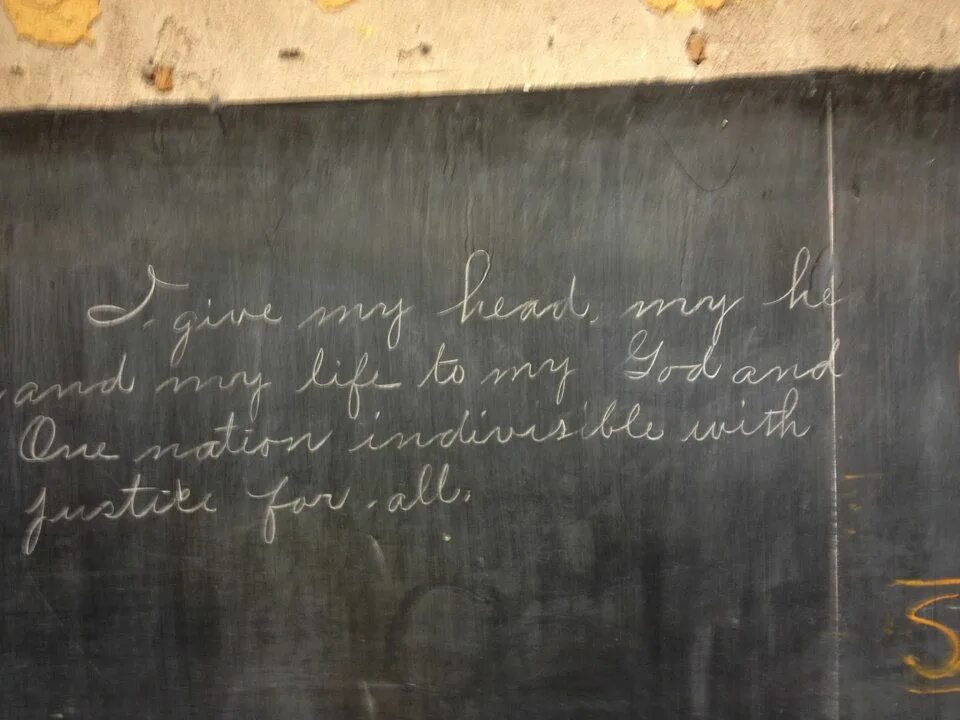 I give my head, my he
and my life to my God and
One nation indivisible with
justice for all.
5